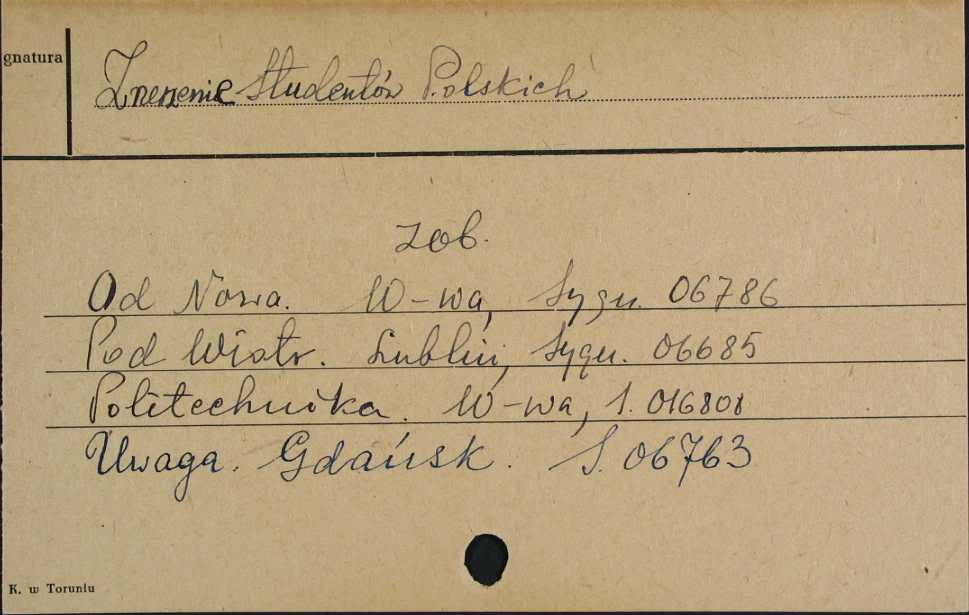 gnatura
Zrzeszenie Studentów Polskich
zob.
Od Nowa. W-wa, Sygn. 06786
Pod Wiatr. Lublin, Sygn. 06685
Politechnika. W-wa, S. 016808
Uwaga. Gdańsk. S. 06763
K. w Toruniu